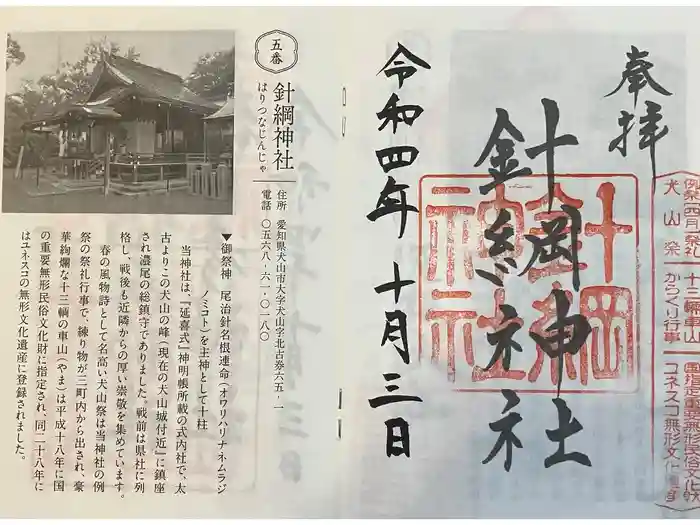 十三輌車山 国指定重要無形民俗文化財
犬山祭 からくり行事 ユネスコ無形文化遺産
奉拝
針綱神社
針綱神社
令和四年十月三日
五番
針綱神社
はりつなじんじゃ
住所 愛知県犬山市大字犬山字北古券六五‐一
電話 〇五六八‐六一‐〇一八〇
▼御祭神 尾治針名根連命(オワリハリナネムラジ
ノミコト)を主神として十柱
当神社は、『延喜式』神明帳所載の式内社で、太
古よりこの犬山の峰(現在の犬山城付近)に鎮座
され濃尾の総鎮守でありました。戦前は県社に列
格し、戦後も近隣からの厚い崇敬を集めています。
春の風物詩として名高い犬山祭は当神社の例
祭の祭礼行事で、練り物が三町内から出され、豪
華絢爛な十三輌の車山(やま)は平成十八年に国
の重要無形民俗文化財に指定され、同二十八年に
はユネスコの無形文化遺産に登録されました。